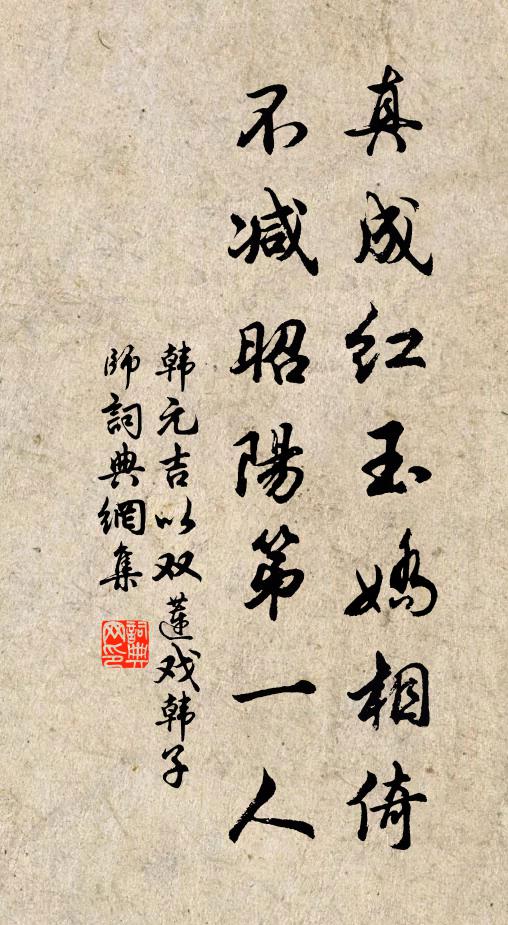 真成红玉娇相倚
不减昭陽第一人
韩元吉以双蓮戏韩子
師詞典網集
詞典网印